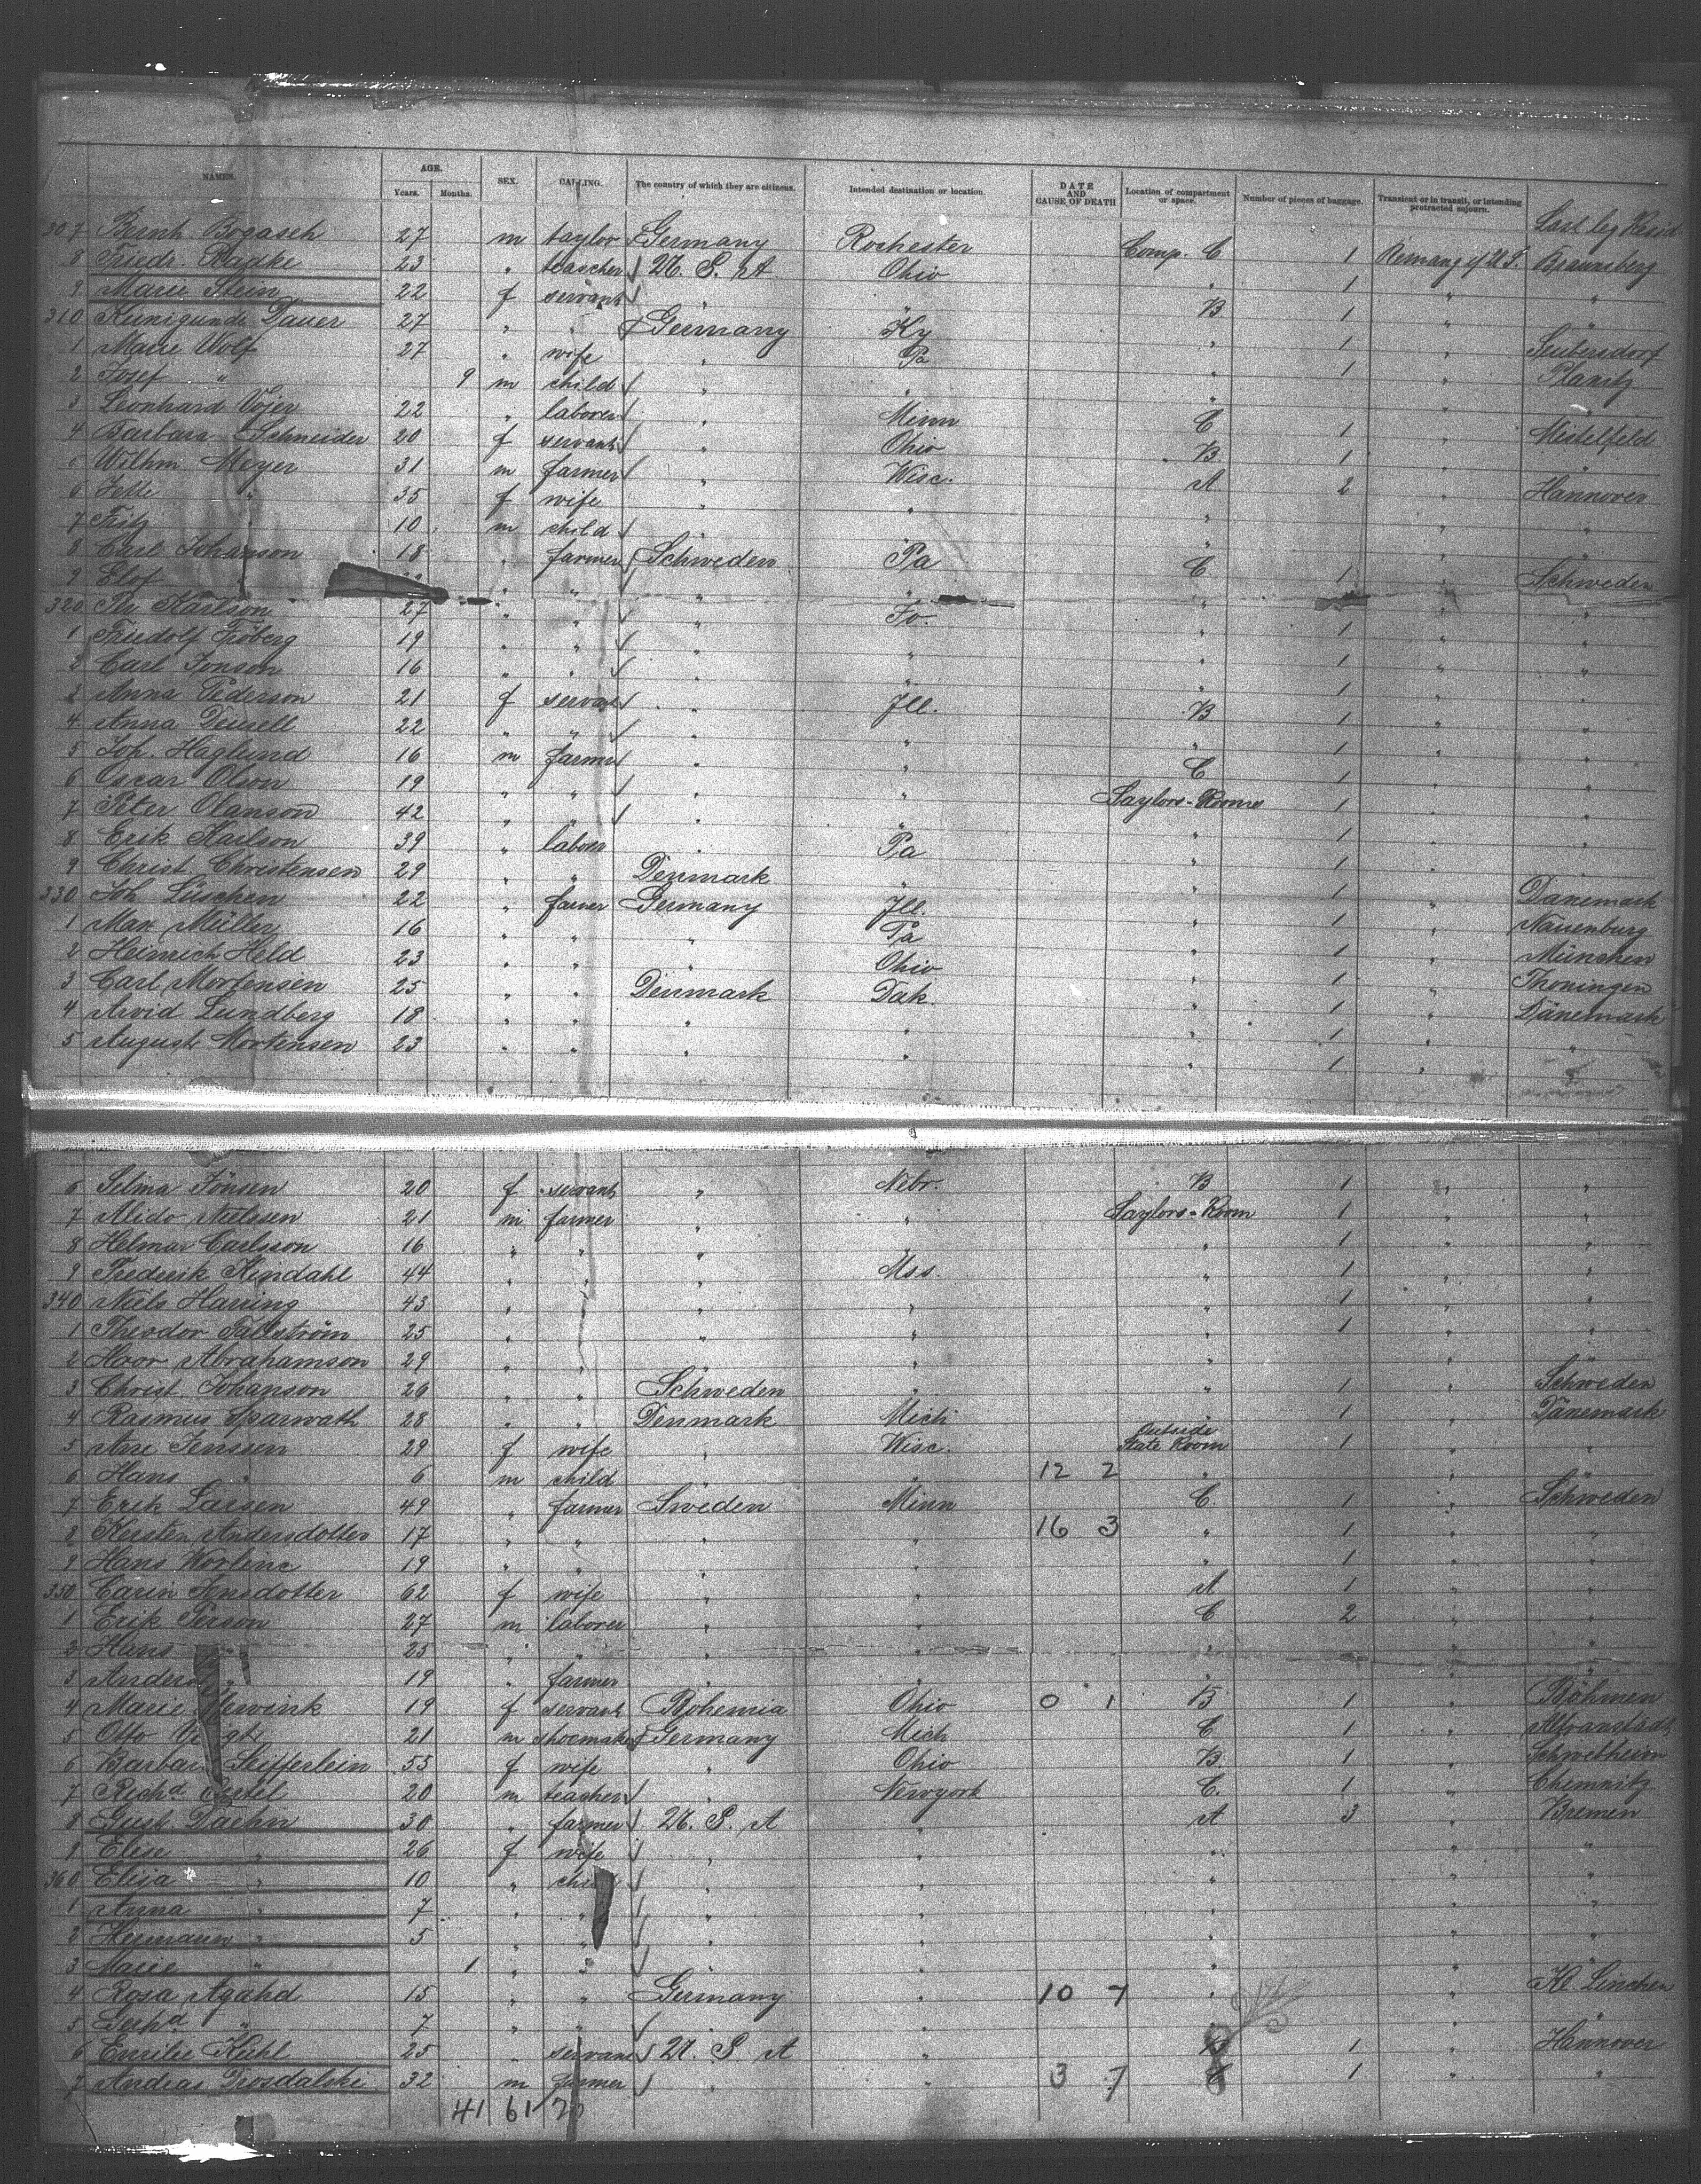 NAMES. AGE. Years. Months. SEX. CALLING. The country of which they are citizens. Intended destination or location. DATE AND CAUSE OF DEATH Location of compartment or space. Number of pieces of baggage. Transient or in transit, or intending protracted sojourn. Last leg Resid
307 Bernh Bogasch 27 m taylor Germany Rochester Comp. C 1 Braunsberg
8 Friedr. Radke 23 " teascher U. S. A Ohio " 1 " "
9 Marie Stein 22 f servant " " B 1 " "
310 Kunigunde Dauer 27 " " Germany Ky " 1 " Seubersdorf
1 Marie Wolf 27 " wife " Pa " 1 " Planitz
2 Josef " 9 m child " " " " "
3 Leonhard Vojer 22 " laborer " Minn C 1 " Mistelfeld
4 Barbara Schneider 20 f servant " Ohio B 1 " "
5 Wilhm Meyer 31 m farmer " Wisc. A 2 " Hannover
6 Jette " 35 f wife " " " " "
7 Fritz " 10 m child " " " " "
8 Carl Johanson 18 " farmer Schweden Pa C 1 " Schweden
9 Elof " " " " " " " "
320 Pr Karlson 27 " " " Jo. " 1 " "
1 Friedolf Fröberg 19 " " " " " 1 " "
2 Carl Jonson 16 " " " " " 1 " "
3 Anna Pederson 21 f servant " Ill. B 1 " "
4 Anna 22 " " " " " 1 " "
5 Joh. Haglund 16 m farmer " " C 1 " "
6 Oscar Olson 19 " " " " Saylors-Rooms 1 " "
7 Peter Olanson 42 " " " " " 1 " "
8 Erik Karlson 39 " laborer " Pa " 1 " "
9 Christ Christensen 29 " " Denmark " " 1 " Dänemark
330 Joh Lüschen 22 " farmer Germany Ill. " 1 " Nauenburg
1 Max Müller 16 " " " Pa " 1 " München
2 Heinrich Held 23 " " " Ohio " 1 " Thoningen
3 Carl Mortensen 25 " " Denmark Dak " 1 " Dänemark
4 Arvid Lundberg 18 " " " " " 1 " "
5 August Mortensen 23 " " " " " 1 " "
6 Selma Jönsen 20 f servant " Nebr. B 1 " "
7 Alido Nielssen 21 m farmer " " Saylors-Room 1 " "
8 Helmar Carlsson 16 " " " " " 1 " "
9 Frederik Kindahl 44 " " " Mss. " 1 " "
340 Niels Harring 43 " " " " " 1 " "
1 Theodor Fallström 25 " " " " " 1 " "
2 Hoor Abrahamson 29 " " " " " " "
3 Christ. Johanson 26 " " Schweden " " 1 " Schweden
4 Rasmus Sparwath 28 " " Denmark Mich " 1 " Dänemark
5 Ane Jenssen 29 f wife " Wisc. Outside State Room 1 " "
6 Hans " 6 m child " " 12 2 " " "
7 Erik Larsen 49 " farmer Sweden Minn C. 1 " Schweden
8 Kersten Andersdotter 17 " " " " 16 3 " 1 " "
9 Hans Worline 19 " " " " " 1 " "
350 Carin Jensdotter 62 f wife " " A 1 " "
1 Erik Person 27 m laborer " " C 2 " "
2 Hans " 25 " " " " " " "
3 Anders " 19 " farmer " " " " "
4 Marie 19 f servant Bohemia Ohio 0 1 B 1 " Böhmen
5 Otto 21 m shoemaker Germany Mich C 1 " Altranstädt
6 Barbara Seifferlein 55 f wife " Ohio B 1 " Schwebheim
7 Richd 20 m teacher " Newyork C. 1 " Chemnitz
8 Gust Daehn 30 " farmer U. S. A " A 3 " Bremen
9 Elise " 26 f wife " " " " "
360 Elisa " 10 " child " " " " "
1 Anna " 7 " " " " " " "
2 Hermann " 5 " " " " " " "
3 Marie " 1 " " " " " " "
4 Rosa Agahd 15 " " Germany " 10 7 " " Kl. Linchen
5 Gerhd " 7 " " " " " " "
6 Emilie Kuhl 25 " servant U. S A " 1 " Hannover
7 Andreas Grosdalski 32 m farmer " " 3 7 C 1 " "
41 61